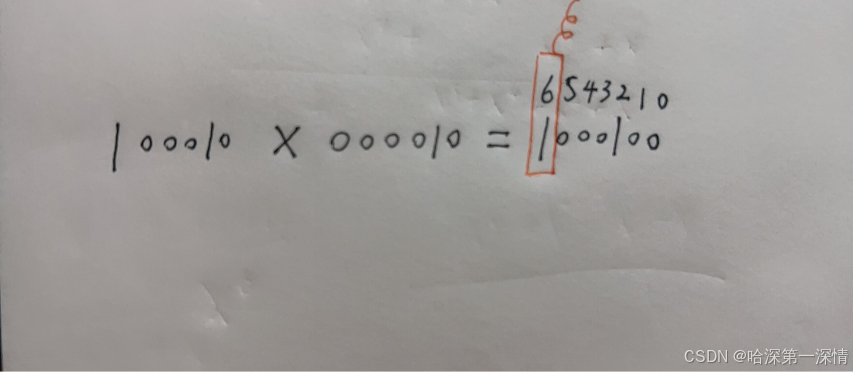 6543210
100010 X 000010 = 1000100
CSDN @哈深第一深情